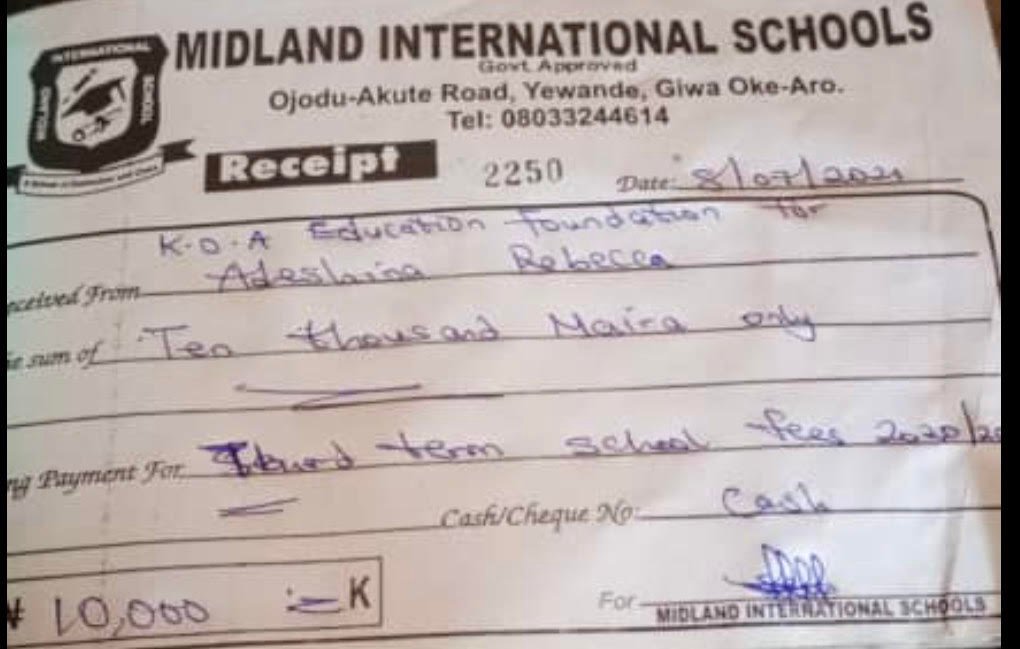 INTERNATIONAL
MIDLAND
SCHOOL
MIDLAND INTERNATIONAL SCHOOLS
Govt. Approved
Ojodu-Akute Road, Yewande, Giwa Oke-Aro.
Tel: 08033244614
Receipt 2250 Date: 8/07/2021
K.O.A Education foundation for
eceived From Adeslaina Rebecca
e sum of Ten thousand Naira only
ng Payment For Third term school fees 2020/20
Cash/Cheque No: Cash
₦ 10,000 := K
For
MIDLAND INTERNATIONAL SCHOOLS